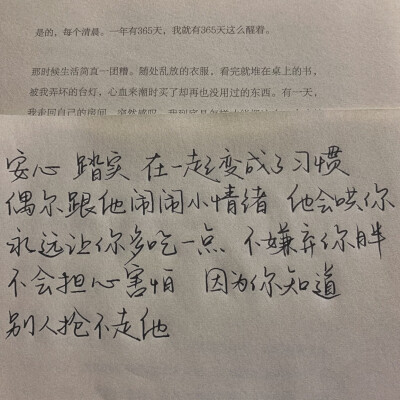 是的，每个清晨。一年有365天，我就有365天这么醒着。
那时候生活简直一团糟。随处乱放的衣服，看完就堆在桌上的书，
被我弄坏的台灯，心血来潮时买了却再也没用过的东西。有一天，
我走回自己的房间，突然感叹，
安心 踏实 在一起变成了习惯
偶尔跟他闹闹小情绪 他会哄你
永远让你多吃一点 不嫌弃你胖
不会担心害怕 因为你知道
别人抢不走他